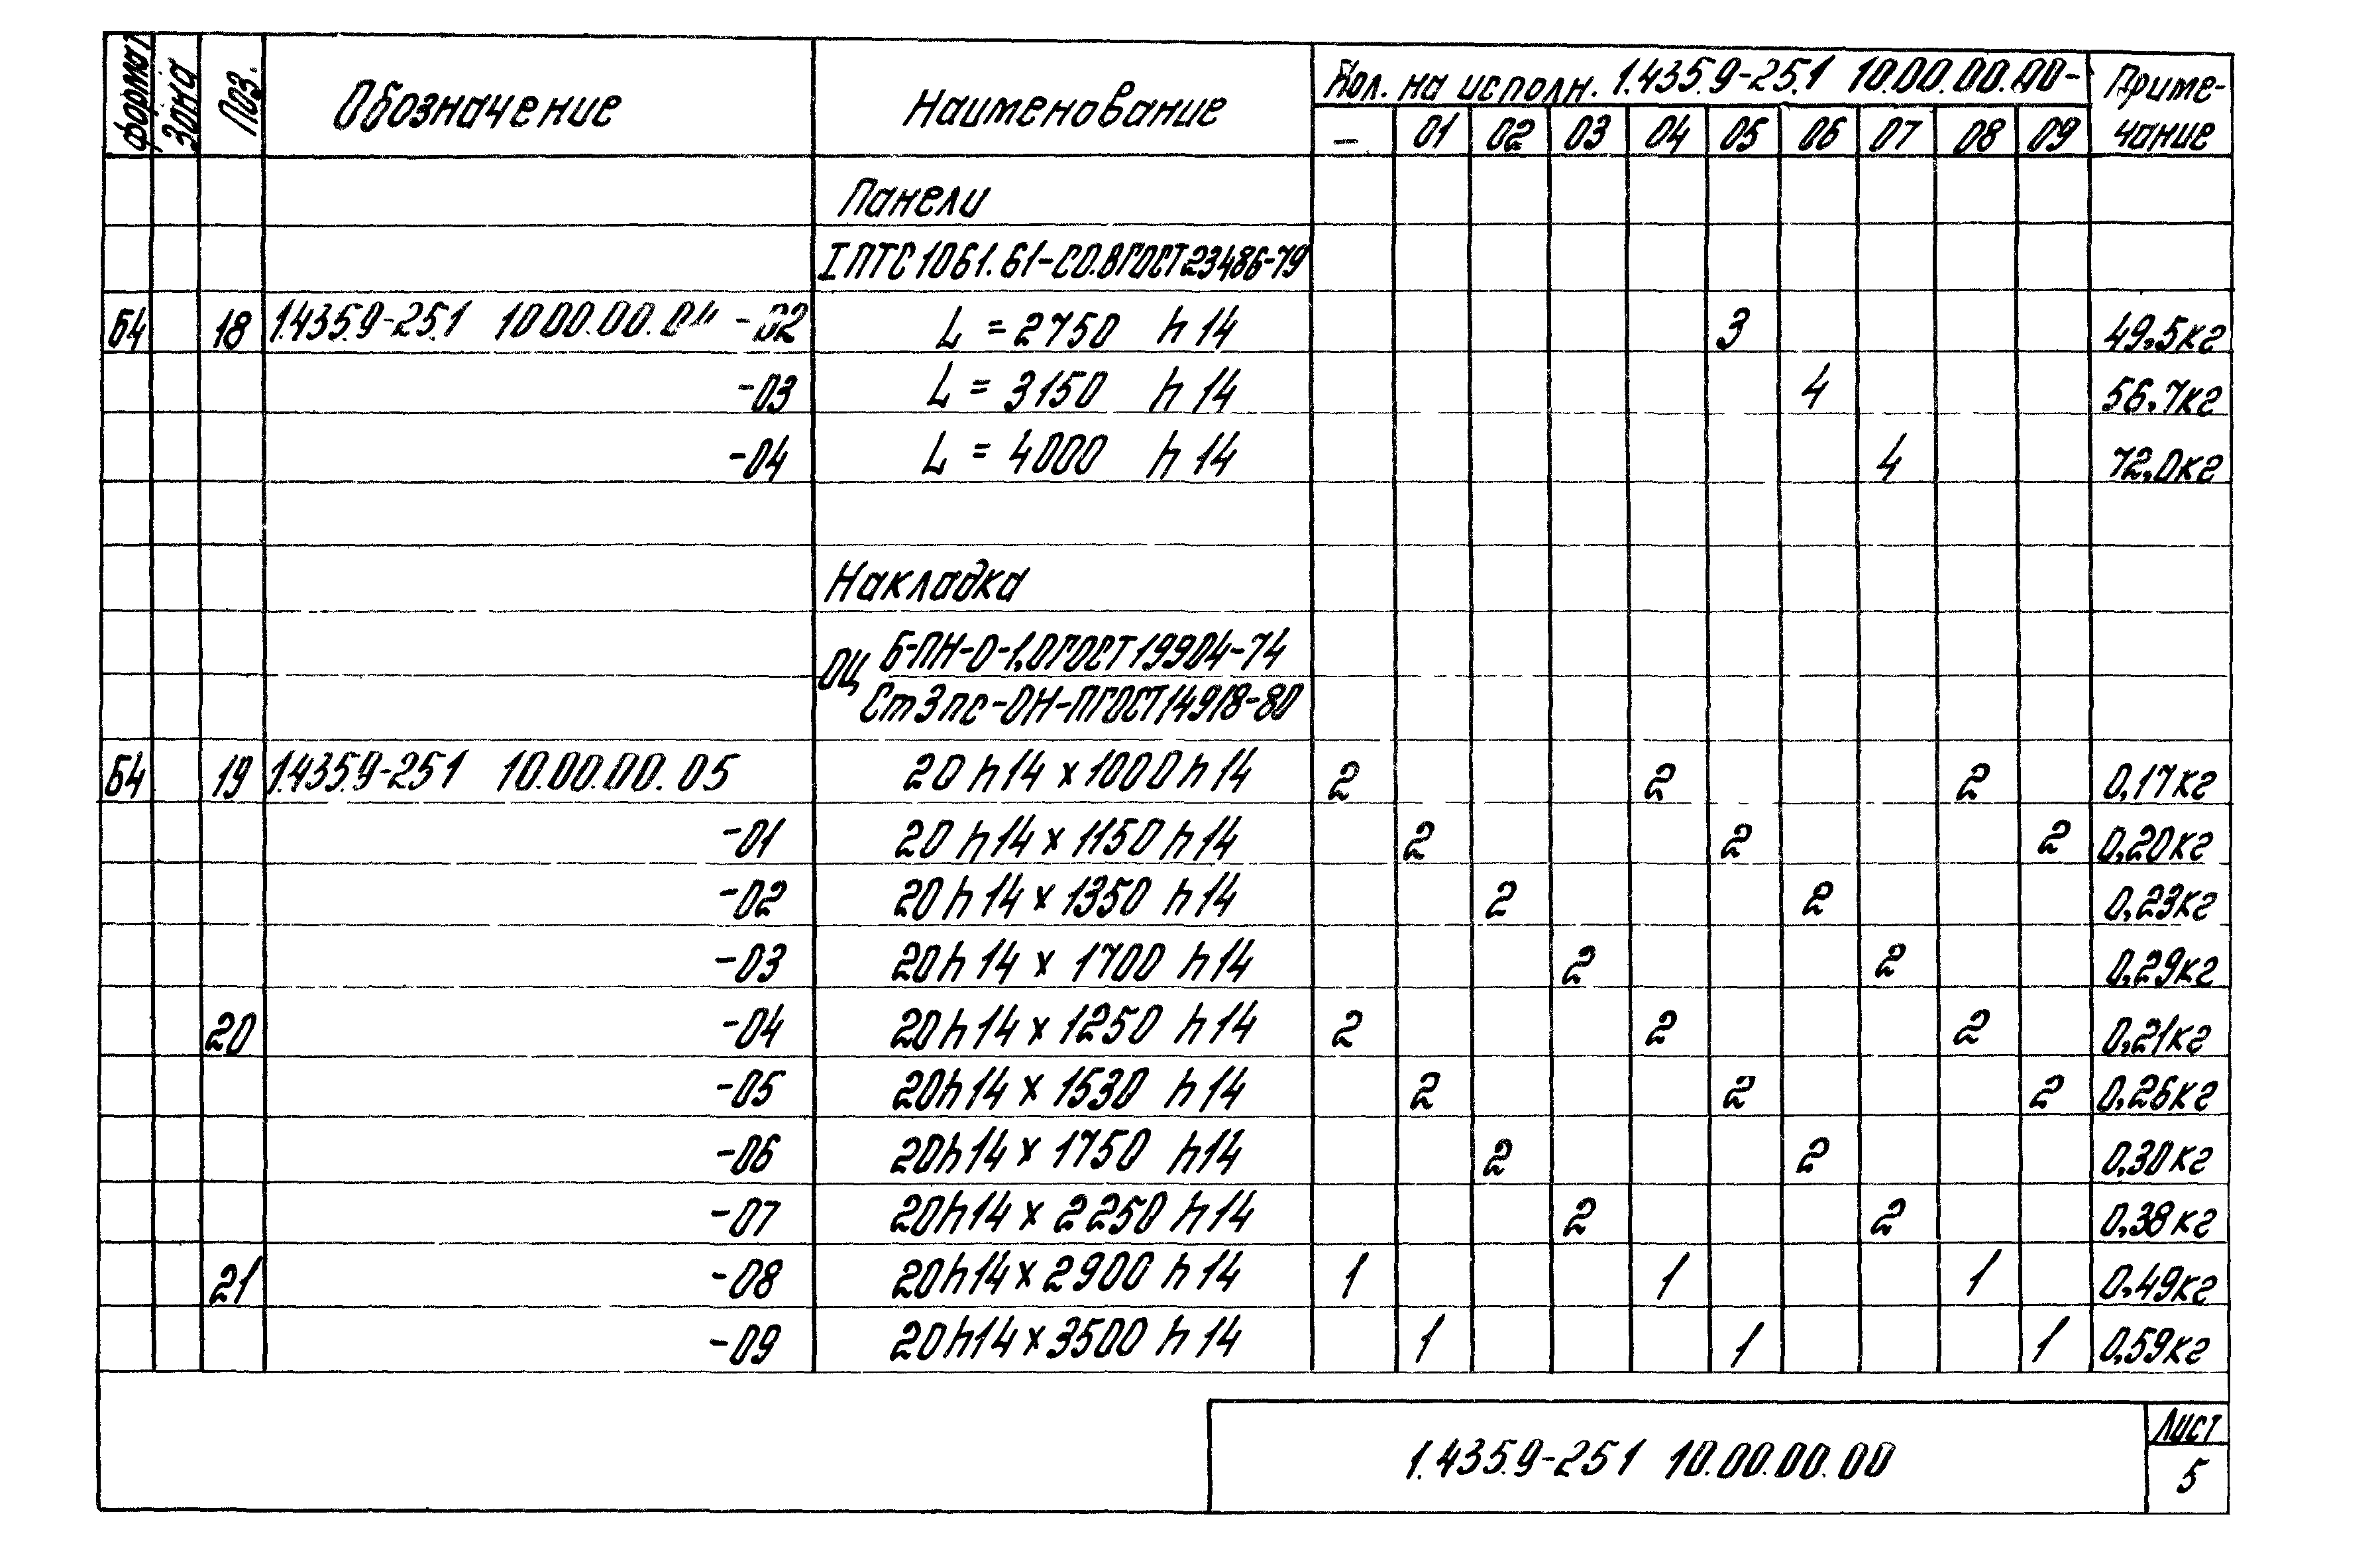 Формат Зона Поз. Обозначение Наименование Кол. на исполн. 1.435.9-25.1 10.00.00.00- Приме-
— 01 02 03 04 05 06 07 08 09 чание
Панели
I ПТС 1061.61-СО.ВГОСТ 23486-79
Б4 18 1.435.9-25.1 10.00.00.04 -02 L = 2750 h 14 3 49,5кг
-03 L = 3150 h 14 4 56,7кг
-04 L = 4000 h 14 4 72,0кг
Накладка
ОЦ Б-ПН-О-1,0ГОСТ 19904-74
Ст3пс-ОН-ПГОСТ 14918-80
Б4 19 1.435.9-25.1 10.00.00.05 20 h14 x 1000 h 14 2 2 2 0,17кг
-01 20 h14 x 1150 h 14 2 2 2 0,20кг
-02 20 h 14 x 1350 h 14 2 2 0,23кг
-03 20h 14 x 1700 h 14 2 2 0,29кг
20 -04 20h14 x 1250 h 14 2 2 2 0,21кг
-05 20h14 x 1530 h 14 2 2 2 0,26кг
-06 20h14 x 1750 h14 2 2 0,30кг
-07 20h14 x 2250 h 14 2 2 0,38кг
21 -08 20h14 x 2900 h 14 1 1 1 0,49кг
-09 20h14 x 3500 h 14 1 1 1 0,59кг
1.435.9-25.1 10.00.00.00
Лист
5